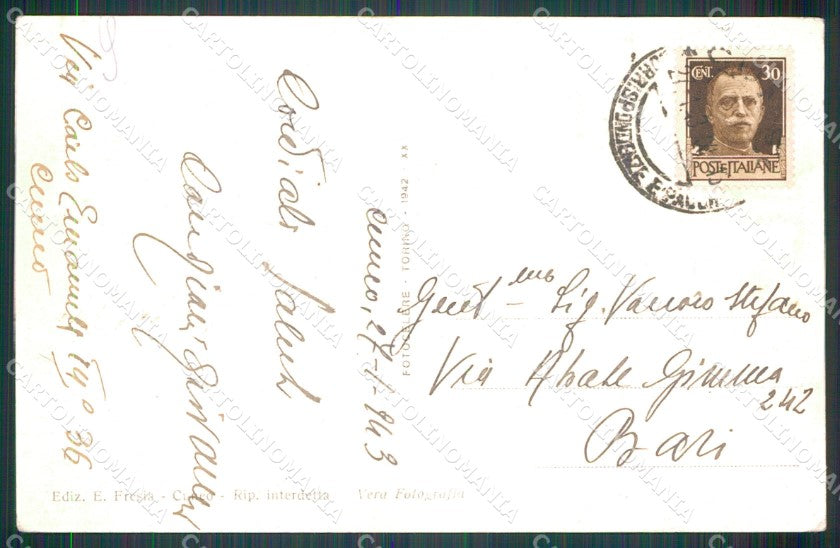 Via Carlo Emanuele IV° 36
Cuneo
Cordiali Saluti
Cuneo, 27-1-943
FOTOCELERE - TORINO - 1942 - XX
CORRISPONDENZE E PACCHI
CENT. 30
POSTE ITALIANE
Gent-mo Sig. Vacoro Stefano
Via Abate Gimma
242
Bari
Ediz. E. Fresia - Cuneo - Rip. interdetta
Vera Fotografia
CARTOLINOMANIA